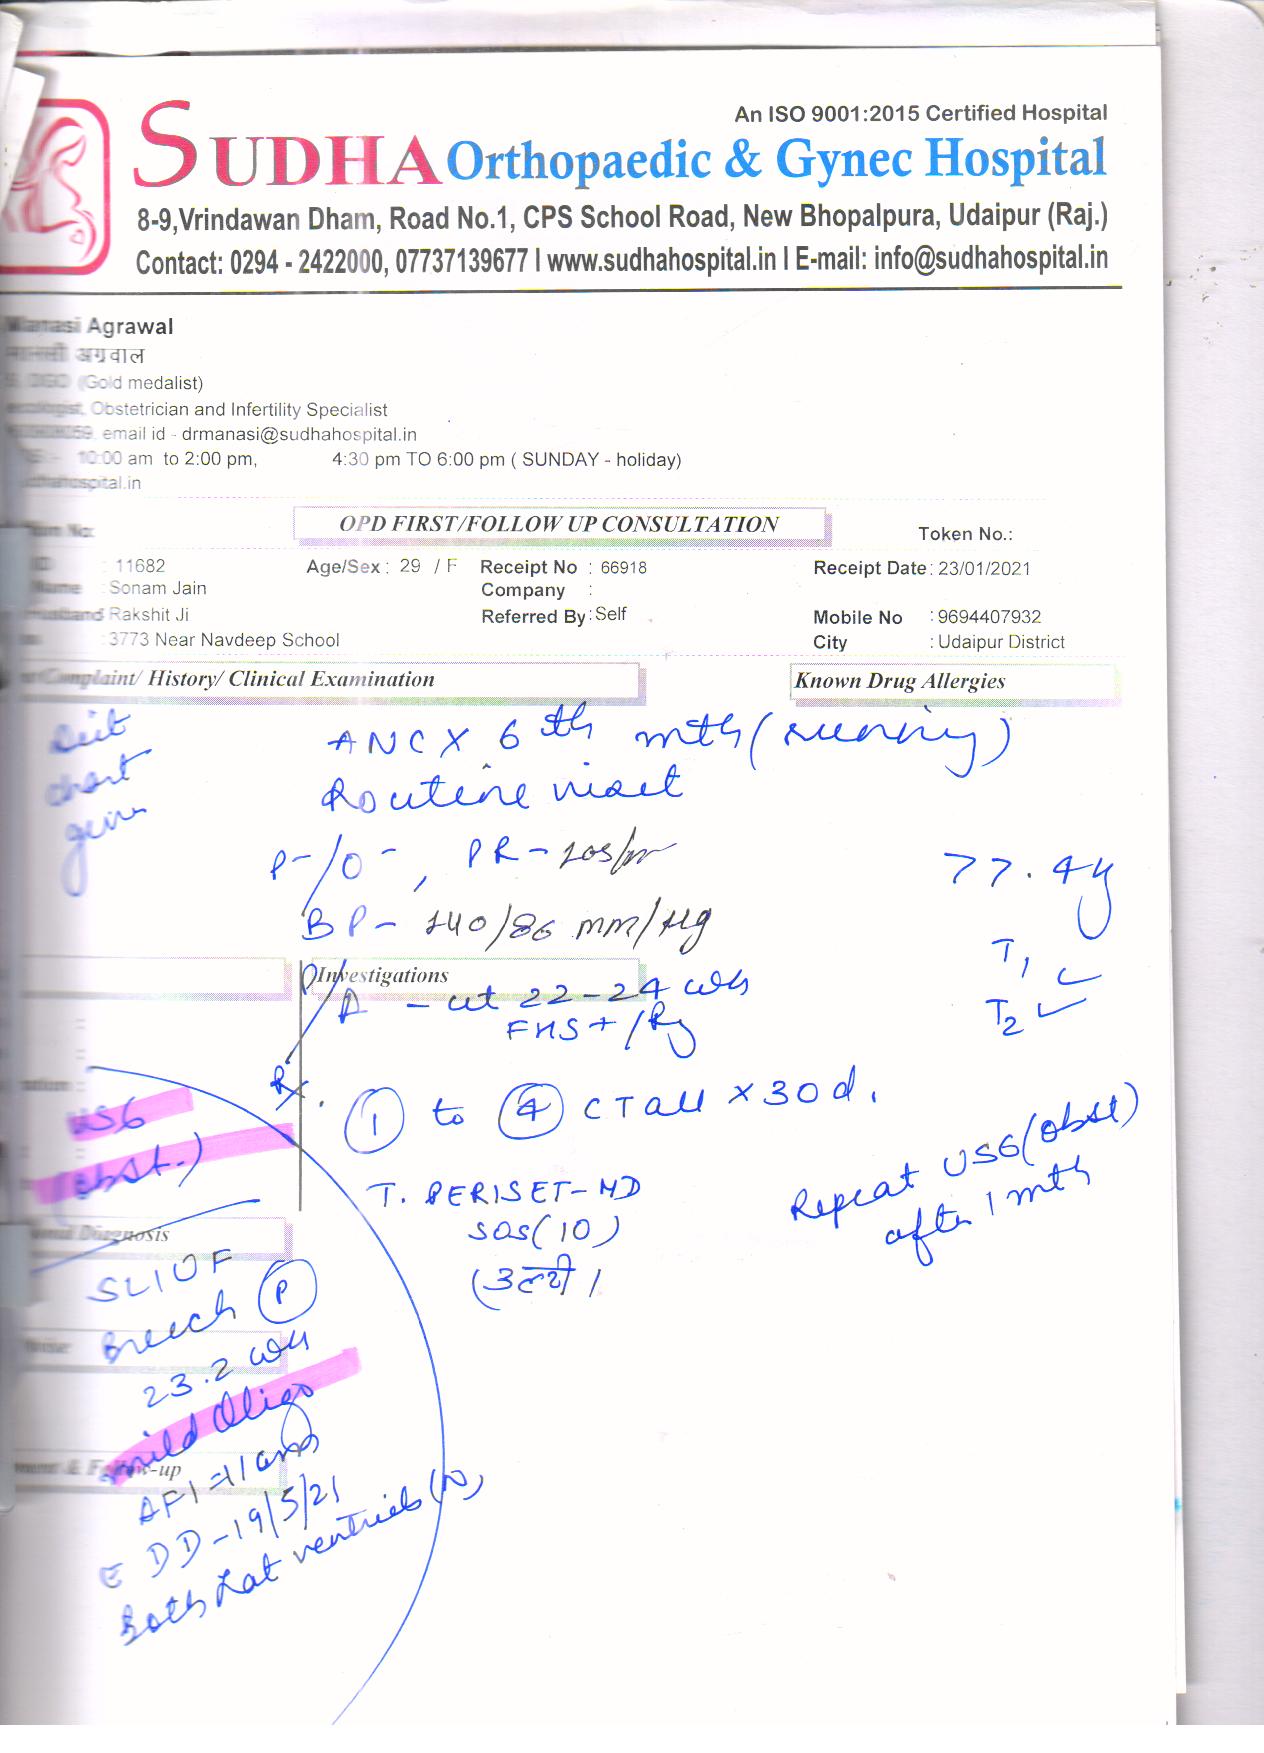 An ISO 9001:2015 Certified Hospital
SUDHA Orthopaedic & Gynec Hospital
8-9,Vrindawan Dham, Road No.1, CPS School Road, New Bhopalpura, Udaipur (Raj.)
Contact: 0294 - 2422000, 07737139677 I www.sudhahospital.in I E-mail: info@sudhahospital.in
Manasi Agrawal
मानसी अग्रवाल
DGO (Gold medalist)
Obstetrician and Infertility Specialist
email id - drmanasi@sudhahospital.in
10:00 am to 2:00 pm, 4:30 pm TO 6:00 pm ( SUNDAY - holiday)
sudhahospital.in
OPD FIRST/FOLLOW UP CONSULTATION
Token No.:
ID : 11682 Age/Sex : 29 / F Receipt No : 66918 Receipt Date : 23/01/2021
Name : Sonam Jain Company :
Husband Rakshit Ji Referred By : Self Mobile No : 9694407932
: 3773 Near Navdeep School City : Udaipur District
Complaint/ History/ Clinical Examination Known Drug Allergies
Diet
chart
given
ANC X 6th mth (running)
Routine visit
P-/O-, PR-
77.4
BP- 140/86 mm/Hg
T1 ✓
T2 ✓
Investigations
P/A - ut 22-24 wks
FHS+/Rg
Rx. 1 to 4 CT all x 30 d.
T. PERISET-MD
SOS (10)
(उल्टी)
Repeat USG (obst)
after 1 mth
USG
(obst.)
Diagnosis
SLIUF
Breech P
23.2 wks
mild Oligo
& Follow-up
AFI = 11 cms
EDD-19/5/21
Both Lat ventricles (N)